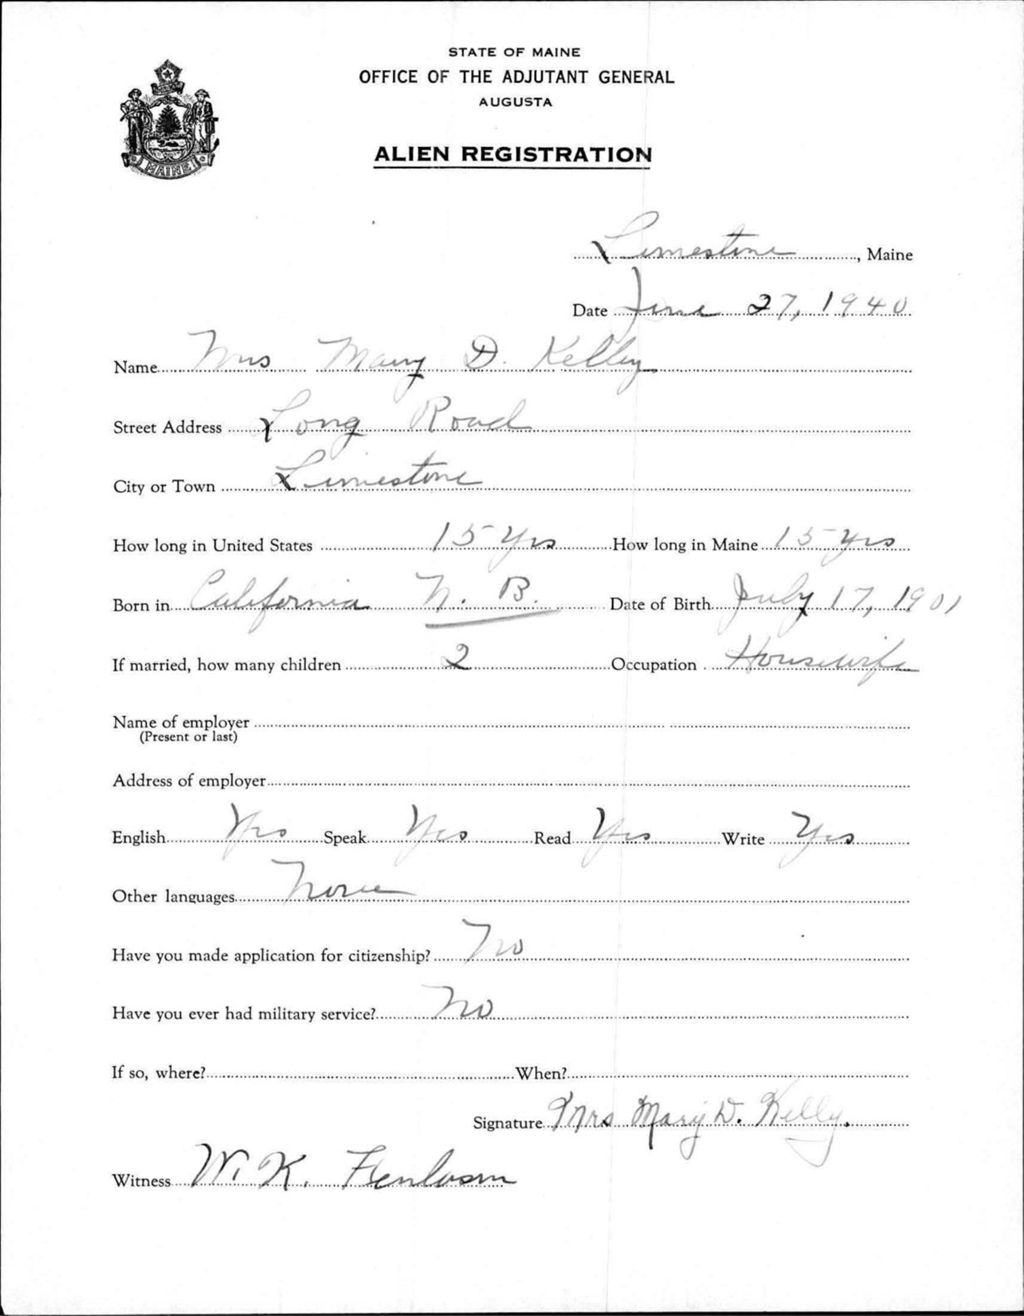 STATE OF MAINE
OFFICE OF THE ADJUTANT GENERAL
AUGUSTA
ALIEN REGISTRATION
MAINE
Limestone, Maine
Date June 27, 1940
Name Mrs Mary D. Kelley
Street Address Long Road
City or Town Limestone
How long in United States 15 Yrs How long in Maine 15 yrs
Born in California N. B. Date of Birth July 17, 1901
If married, how many children 2 Occupation Housewife
Name of employer
(Present or last)
Address of employer
English Yes Speak Yes Read Yes Write Yes
Other languages None
Have you made application for citizenship? No
Have you ever had military service? No
If so, where? When?
Signature Mrs Mary D. Kelly.
Witness W. K.